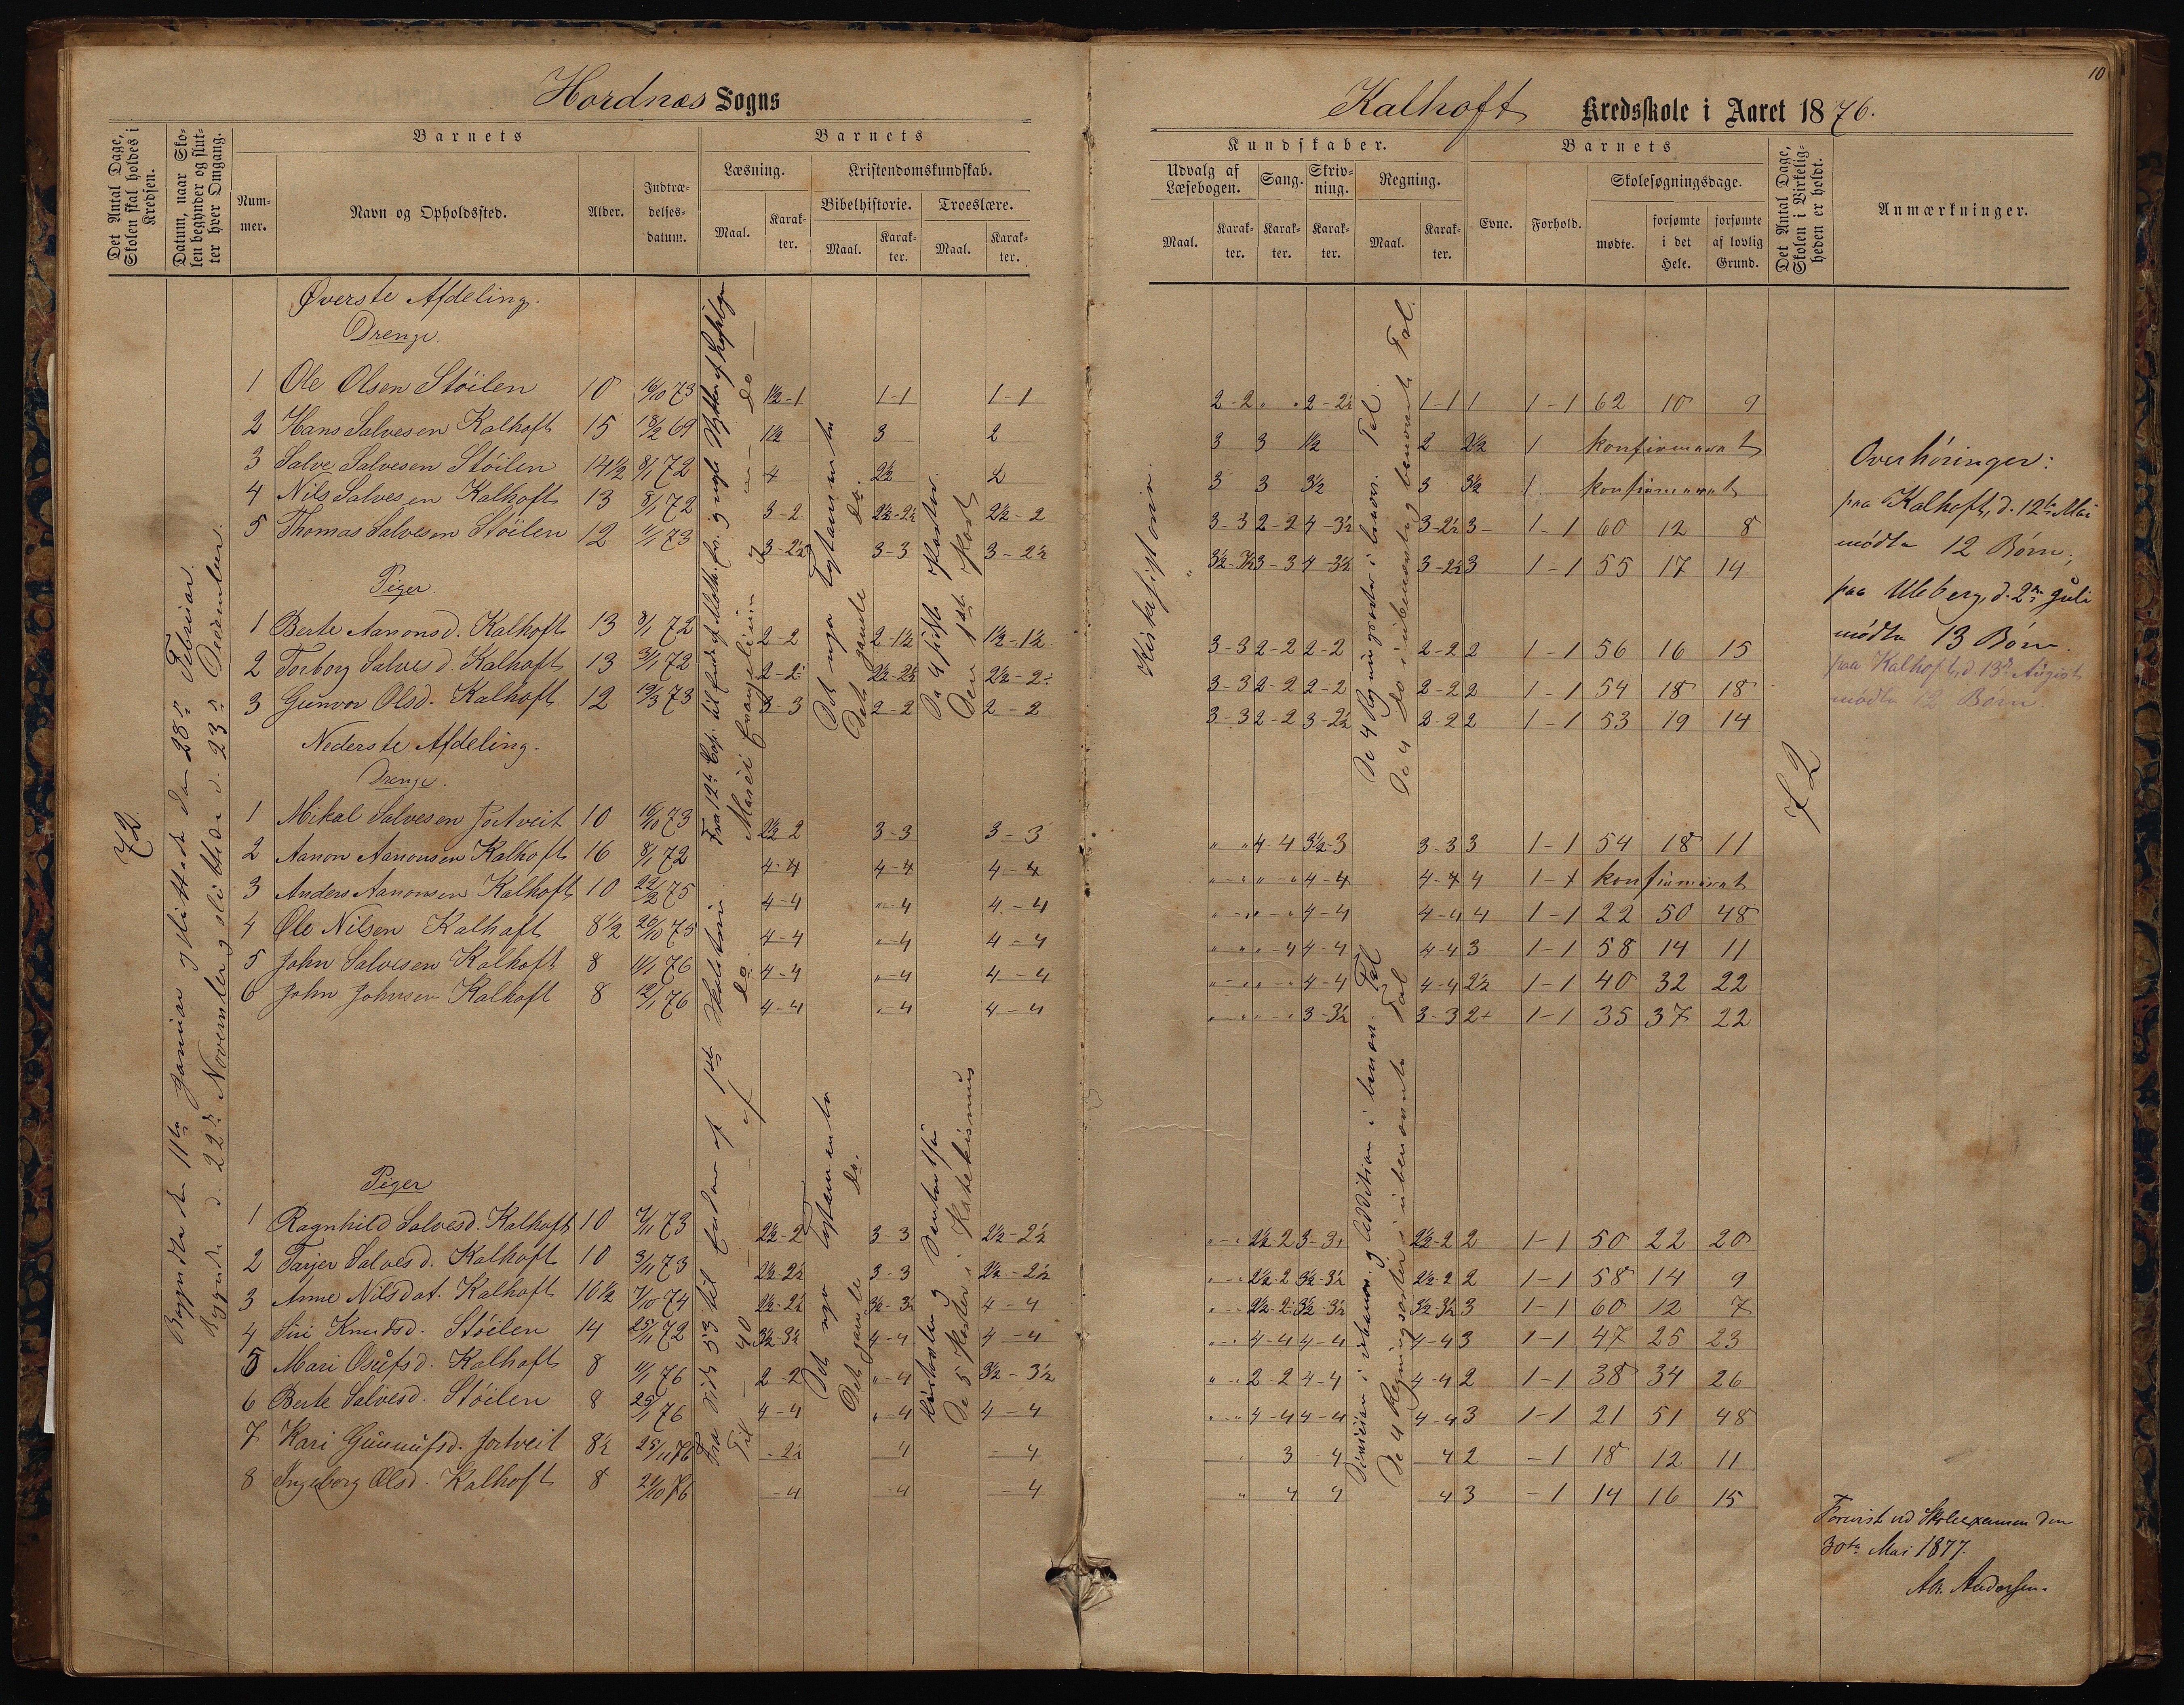 10
Hordnæs Sogns
Kalhoft Kredsskole i Aaret 1876.
Det Antal Dage, Skolen skal holdes i Kredsen.
Datum, naar Skolen begynder og slutter hver Omgang.
Barnets
Nummer.
Navn og Opholdssted.
Alder.
Indtrædelsesdatum.
Barnets
Læsning.
Maal.
Karakter.
Kristendomskundskab.
Bibelhistorie.
Maal.
Karakter.
Troeslære.
Maal.
Karakter.
Kundskaber.
Udvalg af Læsebogen.
Maal.
Karakter.
Sang.
Karakter.
Skrivning.
Karakter.
Regning.
Maal.
Karakter.
Barnets
Evne.
Forhold.
Skolesøgningsdage.
mødte.
forsømte i det Hele.
forsømte af lovlig Grund.
Det Antal Dage, Skolen i Virkeligheden er holdt.
Anmærkninger.
72.
Begyndte den 11te Januar og sluttede den 28de Februar.
Begyndte d. 22de November og sluttede d. 23de December.
Øverste Afdeling.
Drenge.
1 Ole Olsen Stöilen 10 16/10 73 1½-1 1-1 1-1 2-2 " " 2-2½ 1-1 1 1-1 62 10 9
2 Hans Salvesen Kalhoft 15 18/2 69 1½ 3 2 3 3 1½ 2 2½ 1 konfirmeret
3 Salve Salvesen Stöilen 14½ 8/1 72 4 2½ 2 3 3 3½ 3 3½ 1 konfirmeret
4 Nils Salvesen Kalhoft 13 8/1 72 3-2 2½-2½ 2½-2 3-3 2-2 4-3½ 3-2½ 3- 1-1 60 12 8
5 Thomas Salvesen Stöilen 12 11/1 73 3-2½ 3-3 3-2½ 3½-3½ 3-3 4-3½ 3-2½ 3 1-1 55 17 14
Piger.
1 Berte Aanonsd. Kalhoft 13 8/1 72 2-2 2-1½ 1½-1½ 3-3 2-2 2-2 2-2 2 1-1 56 16 15
2 Torborg Salvesd. Kalhoft 13 3/1 72 2-2 2½-2½ 2½-2 3-3 2-2 2-2 2-2 2 1-1 54 18 18
3 Gunvor Olsd. Kalhoft 12 19/3 73 3-3 2-2 2-2 3-3 2-2 3-2½ 2-2 2 1-1 53 19 14
Det nye Testamente
Det gamle do.
De 4 sidste Parter.
Den 1ste Part
Kirkehistorie.
De 4 Regningsarter i benævn. Tal.
De 4 do i ubenævnte og benævnte Tal.
Nederste Afdeling.
Drenge.
1 Mikal Salvesen Jortveit 10 16/10 73 2½-2 3-3 3-3 " " 4-4 3½-3 3-3 3 1-1 54 18 11
2 Aanon Aanonsen Kalhoft 16 8/1 72 4-4 4-4 4-4 " " " " 4-4 4-4 4 1-1 konfirmeret
3 Anders Aanonsen Kalhoft 10 22/2 75 4-4 "-4 4-4 " " " " 4-4 4-4 4 1-1 22 50 48
4 Ole Nilsen Kalhoft 8½ 26/10 75 4-4 "-4 4-4 " " " 4 4-4 4-4 3 1-1 58 14 11
5 John Salvesen Kalhoft 8 11/1 76 4-4 "-4 4-4 " " " " 4-4 4-4 2½ 1-1 40 32 22
6 John Johnsen Kalhoft 8 12/1 76 4-4 "-4 4-4 " " " " 3-3½ 3-3 2+ 1-1 35 37 22
72
Piger
1 Ragnhild Salvesd. Kalhoft 10 7/11 73 2½-2 3-3 2½-2½ " " 2½-2 3-3 2½-2 2 1-1 50 22 20
2 Tarjer Salvesd. Kalhoft 10 3/11 73 2½-2½ 3-3 2½-2½ " " 2½-2 3½-3½ 2½-2 2 1-1 58 14 9
3 Anne Nilsdat. Kalhoft 10½ 7/10 74 2½-2½ 3½-3½ 4-4 " " 2½-2 3½-3½ 3½-3½ 3 1-1 60 12 7
4 Siri Knudsd. Stöilen 14 25/11 72 3½-3½ 4-4 4-4 " " 4-4 4-4 4-4 3 1-1 47 25 23
5 Mari Osufsd. Kalhoft 8 11/1 76 2-2 "-4 3½-3½ " " 2-2 4-4 4-4 2 1-1 38 34 26
6 Berte Salvesd. Stöilen 8 25/1 76 4-4 "-4 4-4 " " 4-4 4-4 4-4 3 1-1 21 51 48
7 Kari Gunnufsd. Jortveit 8½ 25/11 76 -2½ 4 -4 3 4 4 2 -1 18 12 11
8 Ingeborg Olsd. Kalhoft 8 21/10 76 -4 -4 -4 " 4 4 4 3 -1 14 16 15
Det nye Testamente
Det gamle do.
De 5 Parter i Katekismus
De 4 Regningsarter i ubenævnte Tal
Overhöringer:
paa Kalhoft, d. 12te Mai
mödte 12 Börn;
paa Uleberg, d. 2den Juli
mödte 13 Börn.
paa Kalhoft, d. 13de August
mödte 12 Börn.
Forevist ved Skoleexamen den
30te Mai 1877.
Andersen.